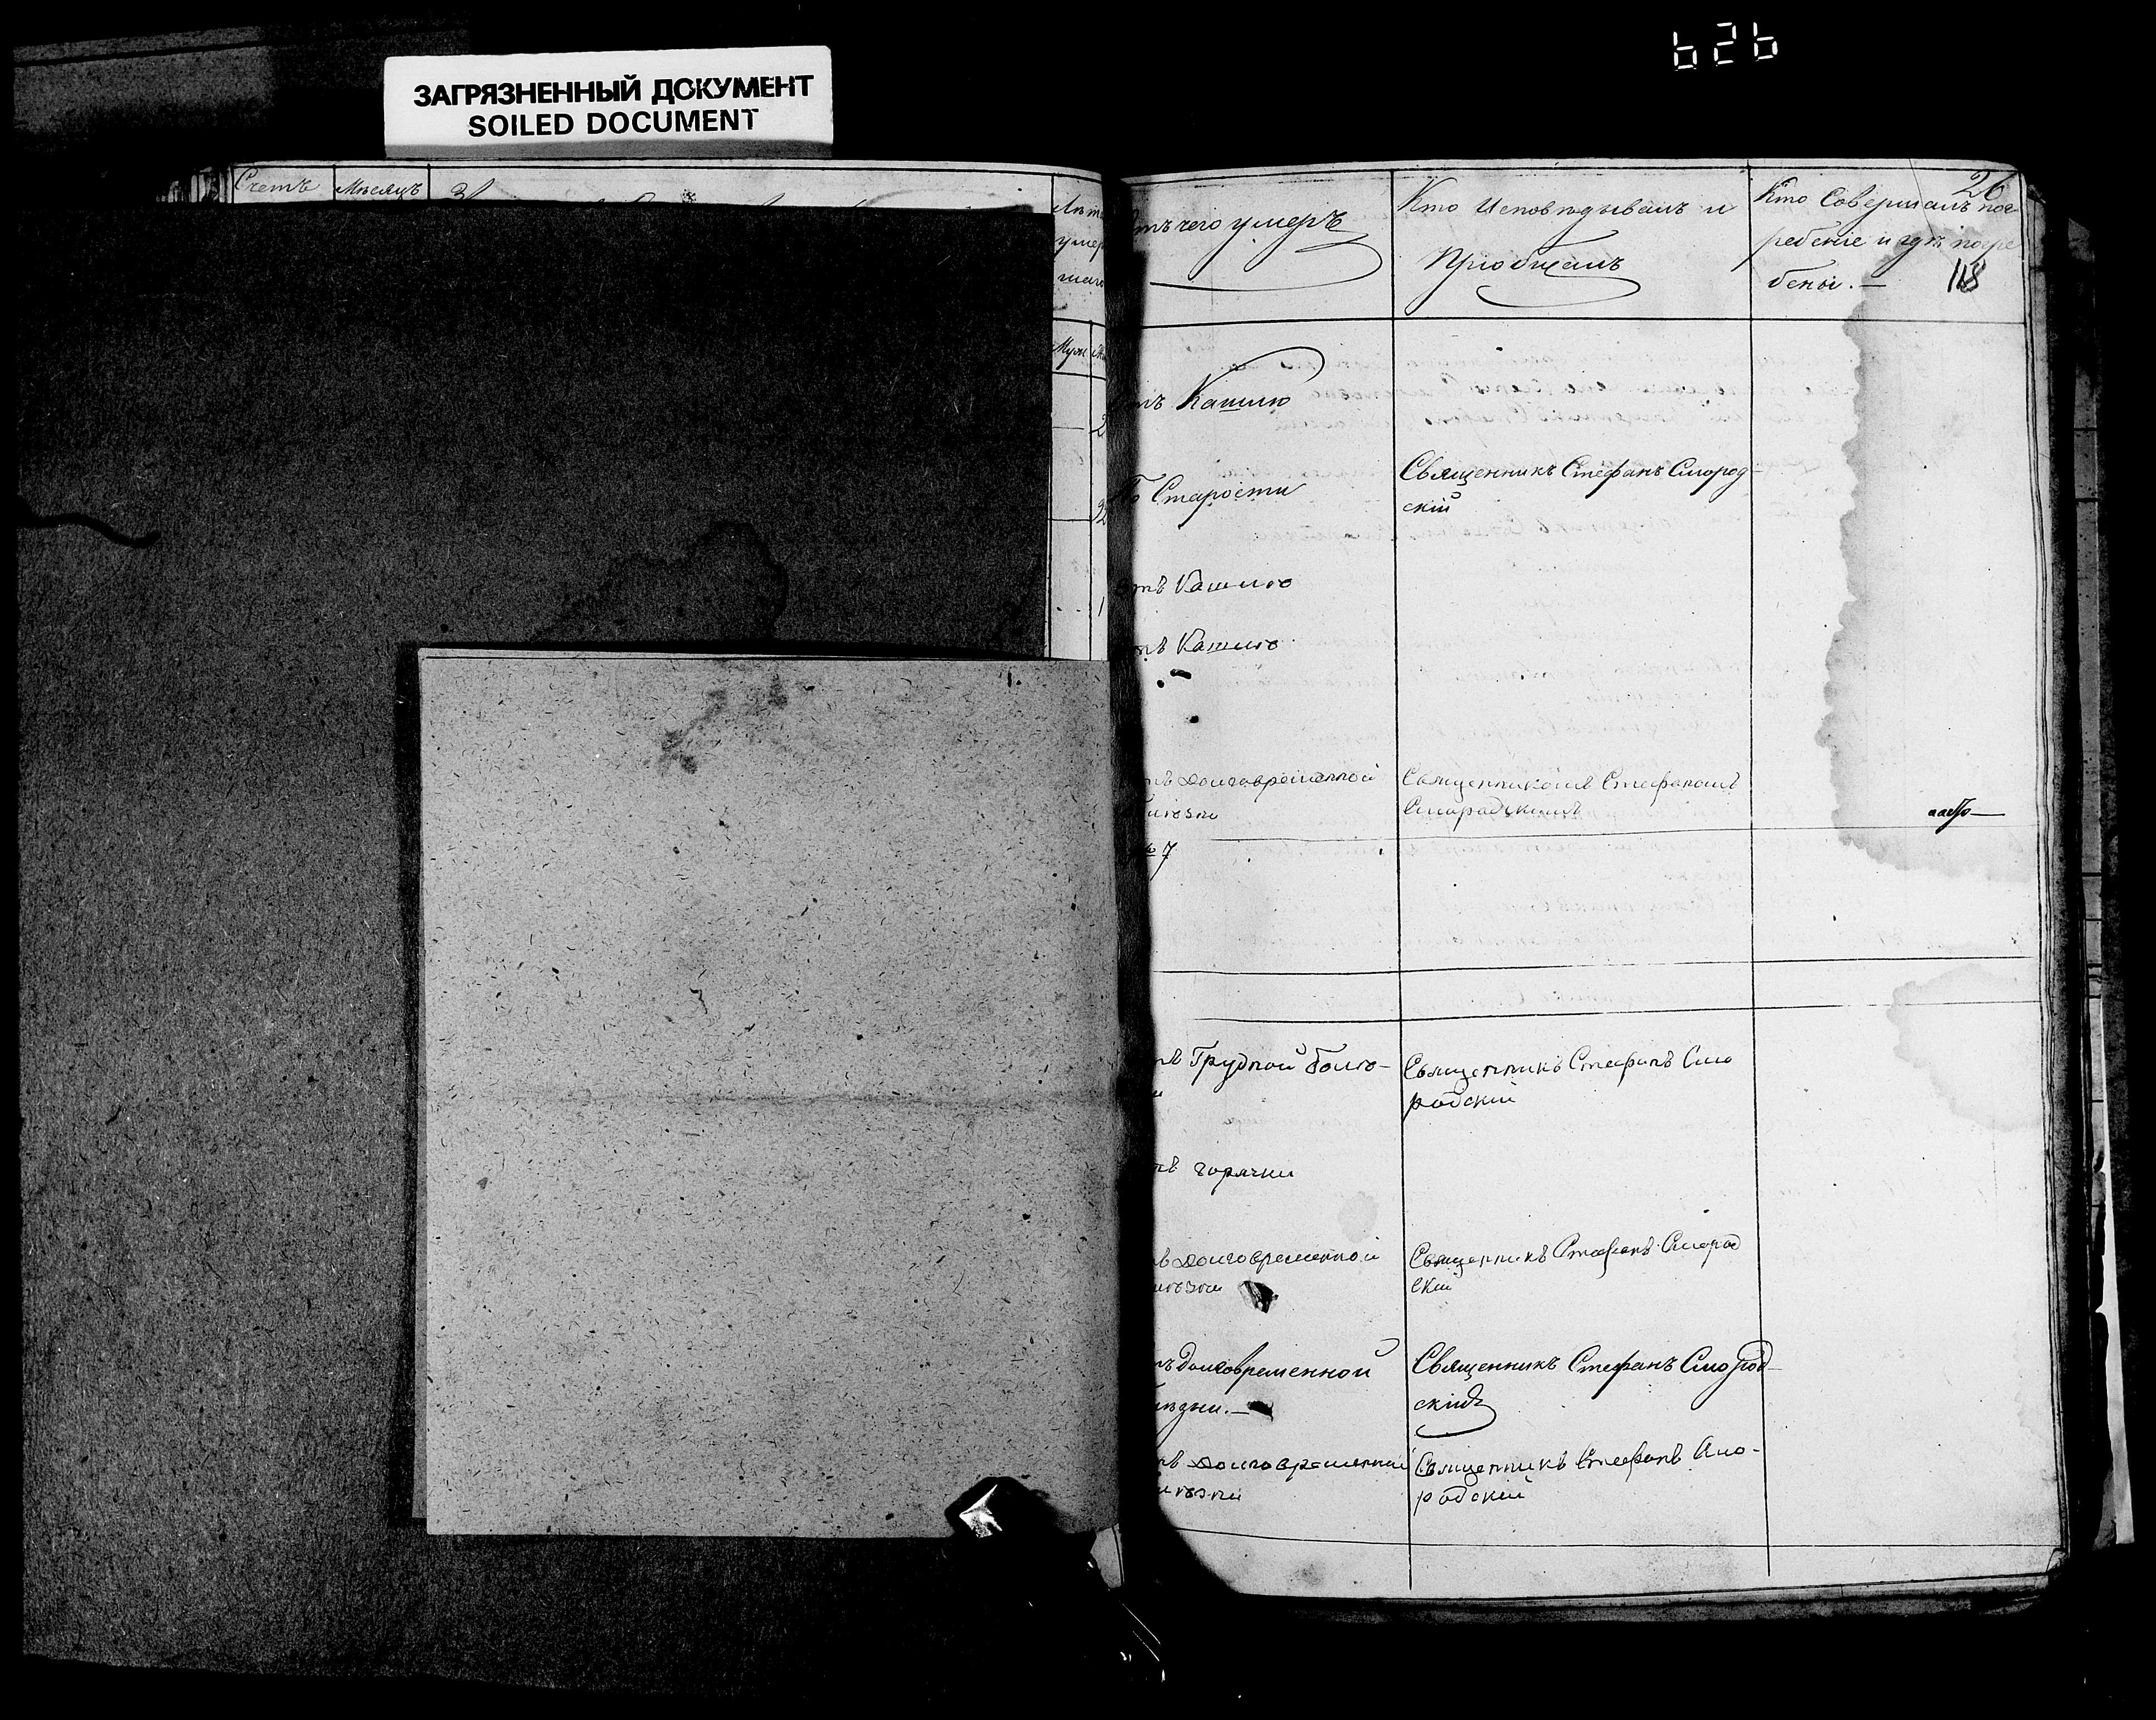 626
ЗАГРЯЗНЕННЫЙ ДОКУМЕНТ
SOILED DOCUMENT
Счетъ Мѣсяцъ
Муж
2
32
1
26
118
тъ чего умеръ
Кто Исповѣдывалъ и
Пріобщалъ
Кто Совершалъ пог
ребеніе и гдѣ погре
бены. —
тъ Кашлю
Старости
Священникъ Стефанъ Смород-
скій
тъ Кашлю
тъ Кашлю
тъ долговременной
лѣзни
Священникомъ Стефаномъ
Смородскимъ
7
тъ Грудной болѣ-
Священникъ Стефанъ Смо
родскій
тъ горячки
ъ долговременной
лѣзни
Священникъ Стефанъ Смород
скій
тъ долговременной
лѣзни. —
Священникъ Стефанъ Смород-
скій
тъ долговременной
лѣзни
Священникъ Стефанъ Смо-
родскій